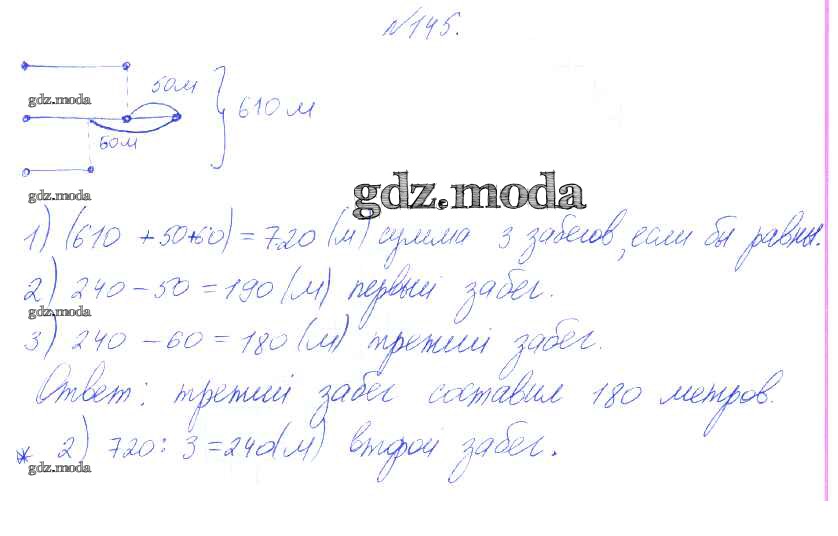 №145.
50м
gdz.moda
610 м
60м
gdz.moda
gdz.moda
1) (610 + 50+60) = 720 (м) сумма 3 забегов, если бы равны.
2) 240 - 50 = 190 (м) первый забег.
gdz.moda
3) 240 - 60 = 180 (м) третий забег.
Ответ: третий забег составил 180 метров.
* 2) 720 : 3 = 240(м) второй забег.
gdz.moda